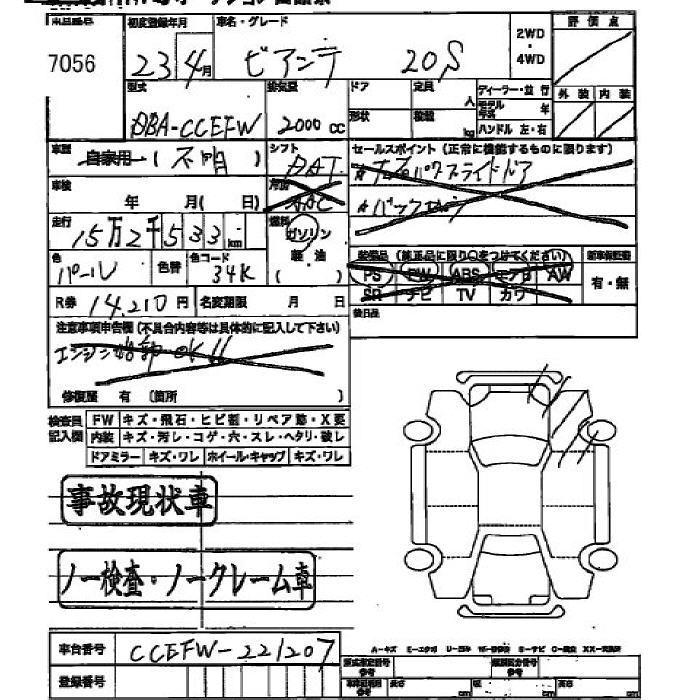 初度登録年月 車名・グレード 2WD ・ 4WD 評価点
7056 23 4月 ビアンテ 20S
型式 排気量 ドア 定員 人 ディーラー・並行 外装 内装
DBA-CCEFW 2000 cc 形状 積載 kg モデル年式 年
ハンドル 左・右
車歴 自家用・(不明) シフト セールスポイント(正常に機能するものに限ります)
DAT ☆左右パワースライドドア
車検 年 月( 日) 冷房 AAC
走行 15万2千533km 燃料 ガソリン
色 パール 色替 色コード 34K 軽油 装備品(純正品に限り○をつけてください) 新車保証書
( ) PS PW ABS エアB AW 有・無
R券 14,210円 名変期限 月 日 SR ナビ TV カワ
後日品
注意事項申告欄(不具合内容等は具体的に記入して下さい)
エンジン始動OK!!
修復歴 有(箇所 )
検査員 FW キズ・飛石・ヒビ割・リペア跡・X要
記入欄 内装 キズ・汚レ・コゲ・穴・スレ・ヘタリ・破レ
ドアミラー キズ・ワレ ホイール・キャップ キズ・ワレ
事故現状車
ノー検査・ノークレーム車
車台番号 CCEFW-221207
登録番号 長さ cm 幅 cm 高さ cm